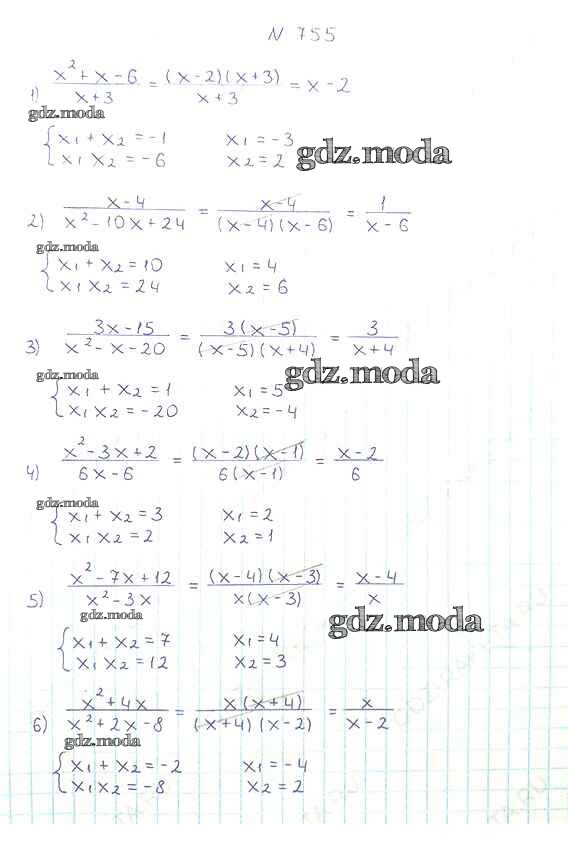 N 755
1) x² + x - 6 / x + 3 = (x - 2)(x + 3) / x + 3 = x - 2
gdz.moda
{ x₁ + x₂ = -1 x₁ = -3
x₁ x₂ = -6 x₂ = 2 gdz.moda
2) x - 4 / x² - 10x + 24 = x - 4 / (x - 4)(x - 6) = 1 / x - 6
gdz.moda
{ x₁ + x₂ = 10 x₁ = 4
x₁ x₂ = 24 x₂ = 6
3) 3x - 15 / x² - x - 20 = 3(x - 5) / (x - 5)(x + 4) = 3 / x + 4
gdz.moda gdz.moda
{ x₁ + x₂ = 1 x₁ = 5
x₁ x₂ = -20 x₂ = -4
4) x² - 3x + 2 / 6x - 6 = (x - 2)(x - 1) / 6(x - 1) = x - 2 / 6
gdz.moda
{ x₁ + x₂ = 3 x₁ = 2
x₁ x₂ = 2 x₂ = 1
5) x² - 7x + 12 / x² - 3x = (x - 4)(x - 3) / x(x - 3) = x - 4 / x
gdz.moda gdz.moda
{ x₁ + x₂ = 7 x₁ = 4
x₁ x₂ = 12 x₂ = 3
6) x² + 4x / x² + 2x - 8 = x(x + 4) / (x + 4)(x - 2) = x / x - 2
gdz.moda
{ x₁ + x₂ = -2 x₁ = -4
x₁ x₂ = -8 x₂ = 2